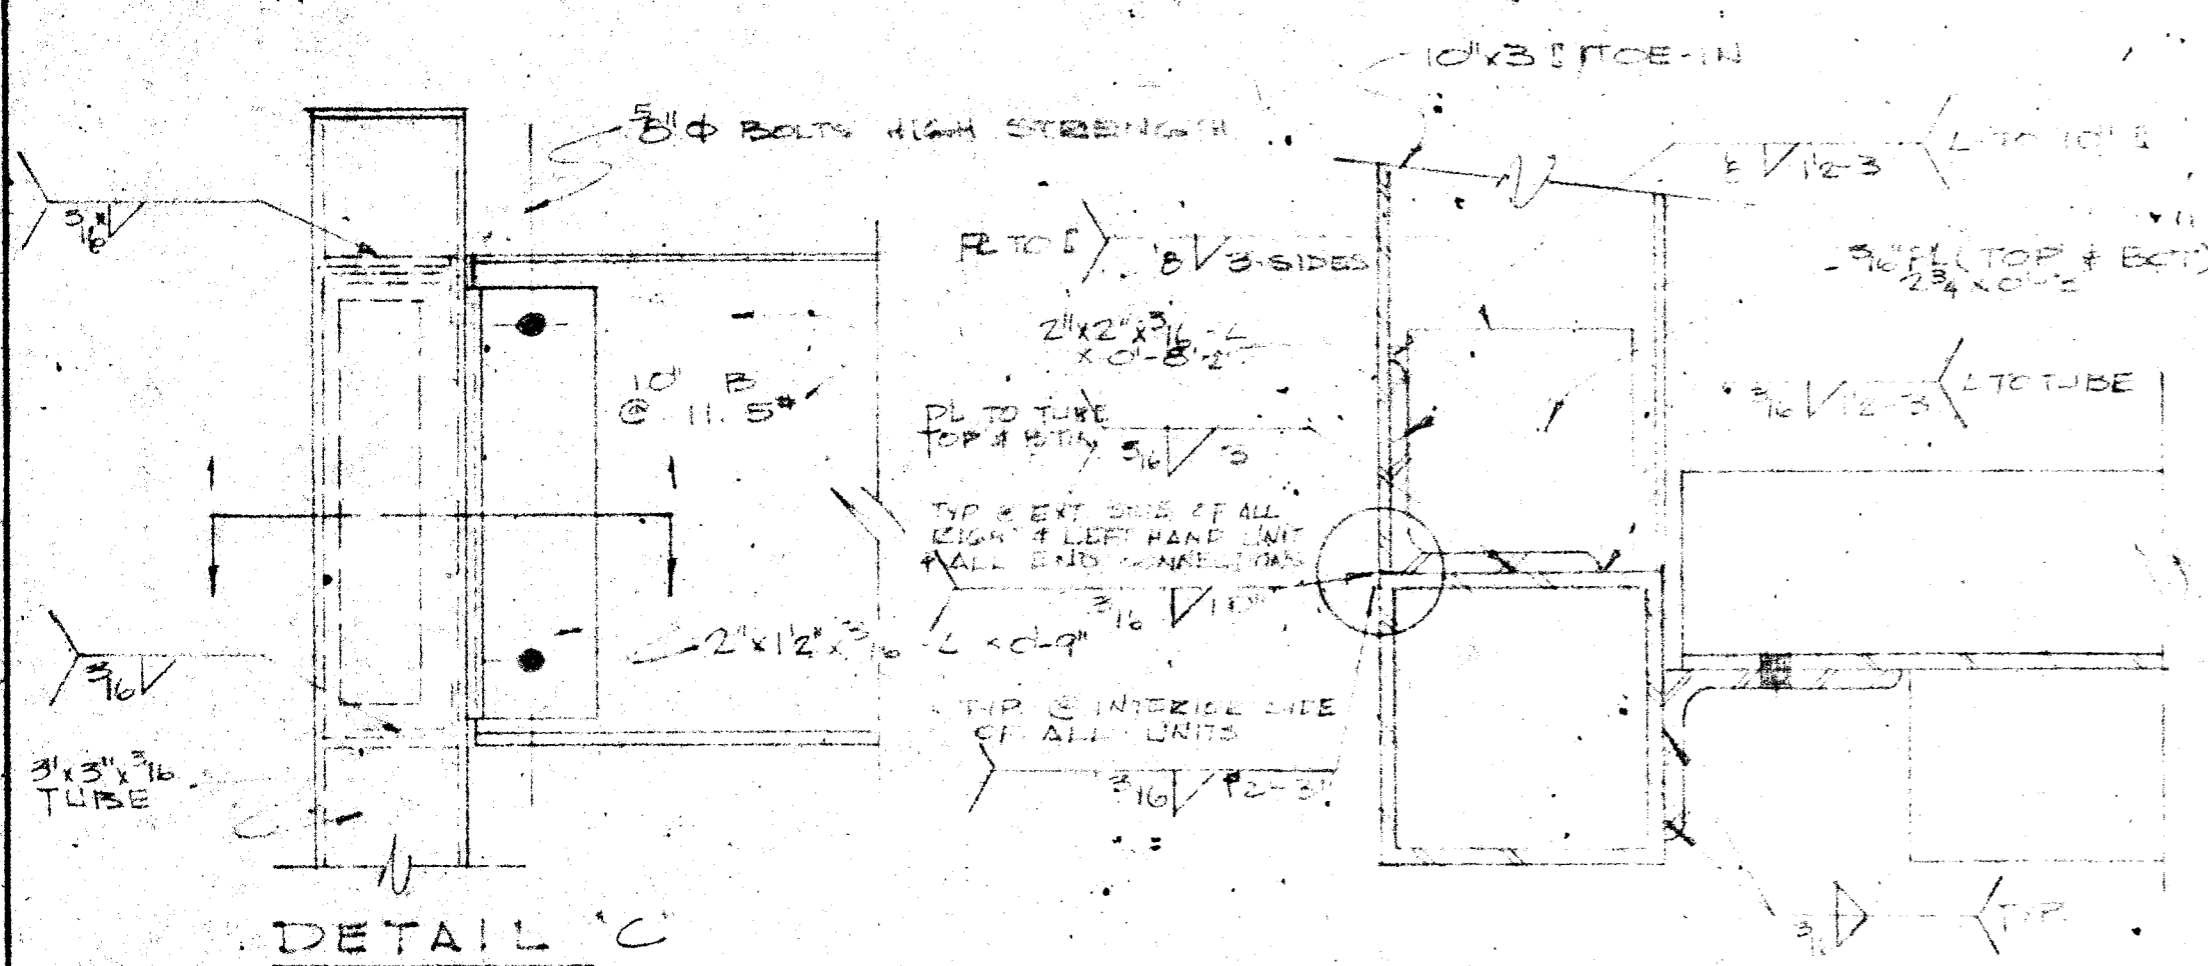 10"x3 [ TOE-IN
5/8"Φ BOLTS HIGH STRENGTH
L TO 10" [
1/2-3
3/16
PL TO [
1/8 3-SIDES
3/16" PL (TOP & BOT)
2 3/4 x 0'-
2"x2"x3/16 L
x 0'-8 1/2"
10" B
@ 11.5#
PL TO TUBE
TOP & BTM
3/16 3
3/16 1/2-3
L TO TUBE
TYP @ EXT SIDE OF ALL
RIGHT & LEFT HAND UNIT
& ALL END CONNECTIONS
3/16 10"
2"x1 1/2"x3/16 L x 0'-9"
3/16
TYP. @ INTERIOR SIDE
OF ALL UNITS
3/16 1/2-3"
3"x3"x3/16
TUBE
TYP.
DETAIL "C"